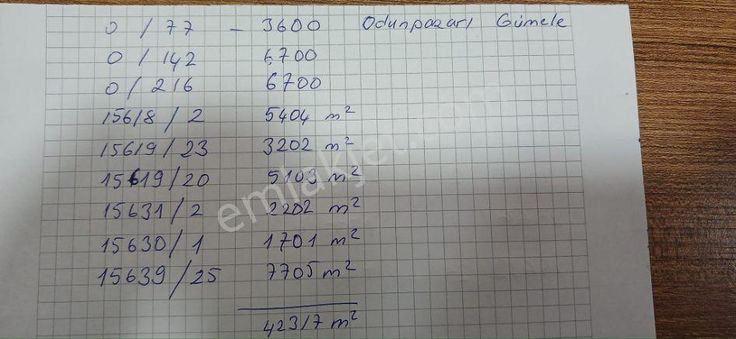 0 / 77 - 3600 Odunpazarı Gümele
0 / 142 6700
0 / 216 6700
15618 / 2 5404 m²
15619 / 23 3202 m²
15619 / 20 5103 m²
15631 / 2 2202 m²
15630 / 1 1701 m²
15639 / 25 7705 m²
42317 m²
emlakjet.com